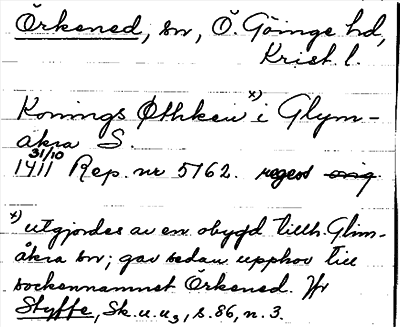 Örkened, sn, Ö. Göinge hd,
Krist. l.
Konings Øthken x) i Glym-
åkra S.
1411 31/10 Rep. nr 5162. regest orig.
x) utgjordes av en obygd tillh. Glim-
åkra sn; gav sedan upphov till
sockennamnet Örkened. Jfr
Styffe, Sk.u.u3, s. 86, n. 3.